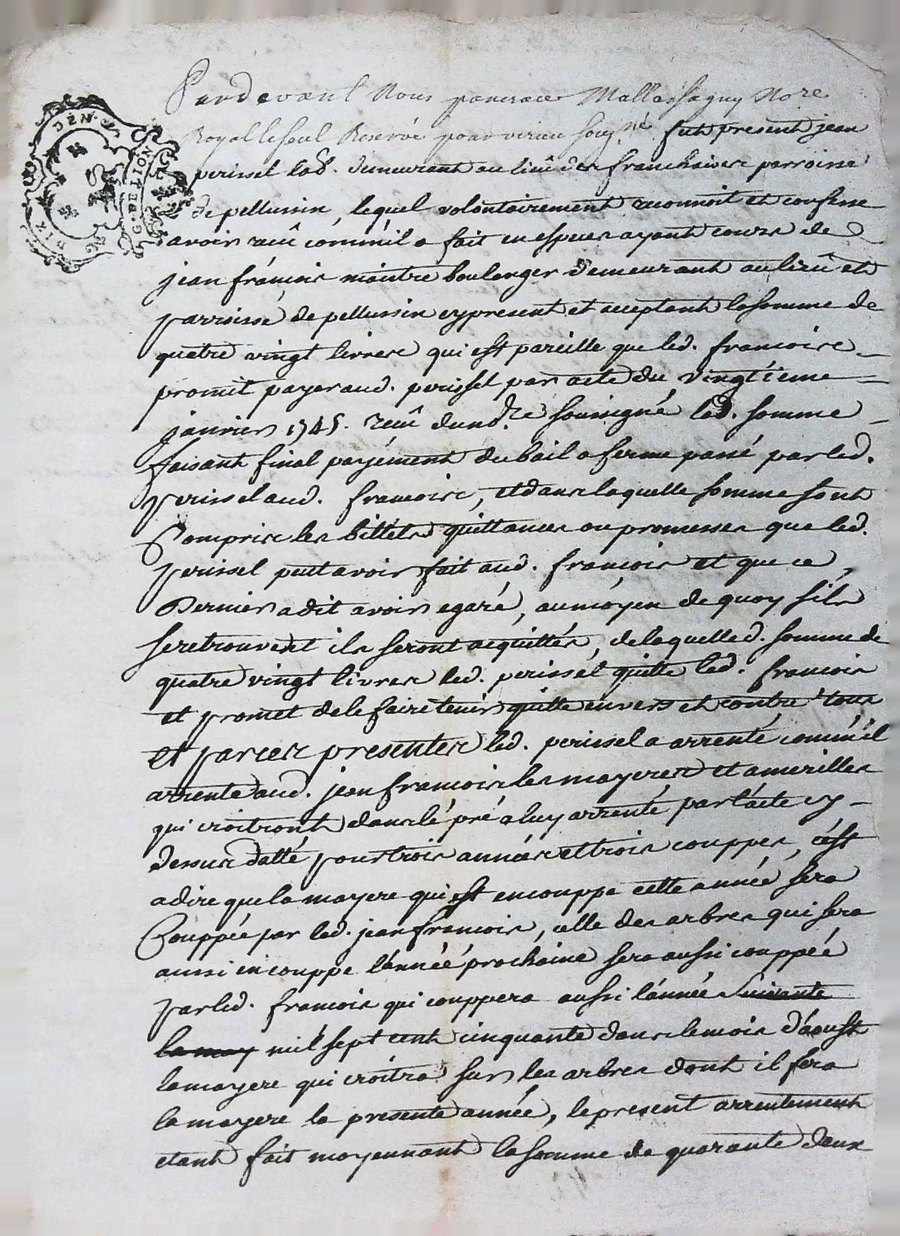 DIX DEN.
G. DE LION
Pardevant Nous pancrace Mallassagny Nore
Royal le seul Reservé pour verieu soussigné fut present jean
perissel lad. demeurant au lieu des franchises parroisse
de pellussin, lequel volontairement reconnoit et confesse
avoir reçû comm'il a fait en especes ayant cours de
jean françois maitre boulanger demeurant au lieû et
parroisse de pellussin cy present et acceptant la somme de
quatre vingt livres qui est pareille que led. francois
promit payer aud. perissel par acte du vingtieme
janvier 1745. reçû du nore soussigné lad. somme
faisant final payement du bail a ferme passé par led.
perissel aud. francois, et dans laquelle somme sont
Compris les billets quittances ou promesses que led.
perissel peut avoir fait aud. francois et que ce
Dernier a dit avoir egaré, au moyen de quoy s'ils
se retrouvent ils seront acquittés, de laquelle d. somme de
quatre vingt livres led. perissel quitte led. francois
et promet de le faire tenir quitte envers et contre tous
et par ces presentes led. perissel a arrenté comm'il
arrente aud. jean francois les mayeres et amerilles
qui croitront dans lé pré a luy arrenté par l'acte cy
dessus datté pour trois années et trois couppes, c'ést
a dire que la mayere qui est en couppe cette année sera
Couppée par led. jean francois, celle des arbres qui sera
aussi en couppe l'année prochaine sera aussi couppée
par led. francois qui couppera aussi l'année suivante
la may mil sept cent cinquante dans le mois d'aoust
la mayere qui croitra sur les arbres dont il fera
la mayere la presente année, le present arrentement
etant fait moyennant la somme de quarante deux